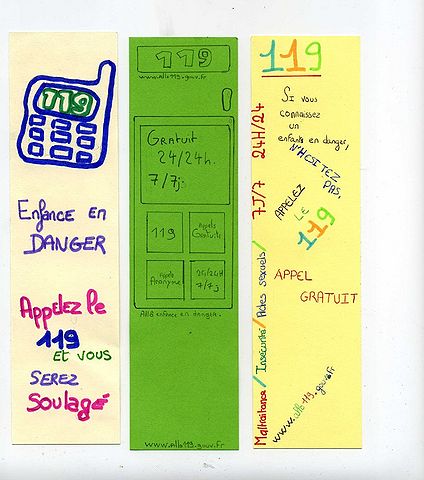 119
Enfance en
DANGER
Appelez le
119
ET VOUS
SEREZ
Soulagé
119
www.allo119.gouv.fr
Gratuit
24/24h.
7/7j
119
Appels
Gratuits
Appels
Anonyme
24/24H
7/7j
Allo enfance en danger.
www.allo119.gouv.fr
119
Si vous
connaissez
un
enfants en danger,
N'HESITEZ
PAS,
APPELEZ
LE
119
APPEL
GRATUIT
www.allo119.gouv.fr
Maltraitance / Insécurité / Actes sexuels / 7J/7 24H/24